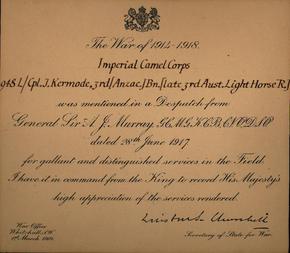 The War of 1914-1918.
Imperial Camel Corps
948 L/Cpl. J. Kermode, 3rd [Anzac] Bn. [late 3rd Aust. Light Horse R.]
was mentioned in a Despatch from
General Sir A. J. Murray, G.C.M.G., K.C.B., C.V.O., D.S.O.
dated 28th June 1917
for gallant and distinguished services in the Field.
I have it in command from the King to record His Majesty's
high appreciation of the services rendered.
Winston S. Churchill
War Office
Whitehall, S.W.
1st March 1919.
Secretary of State for War.